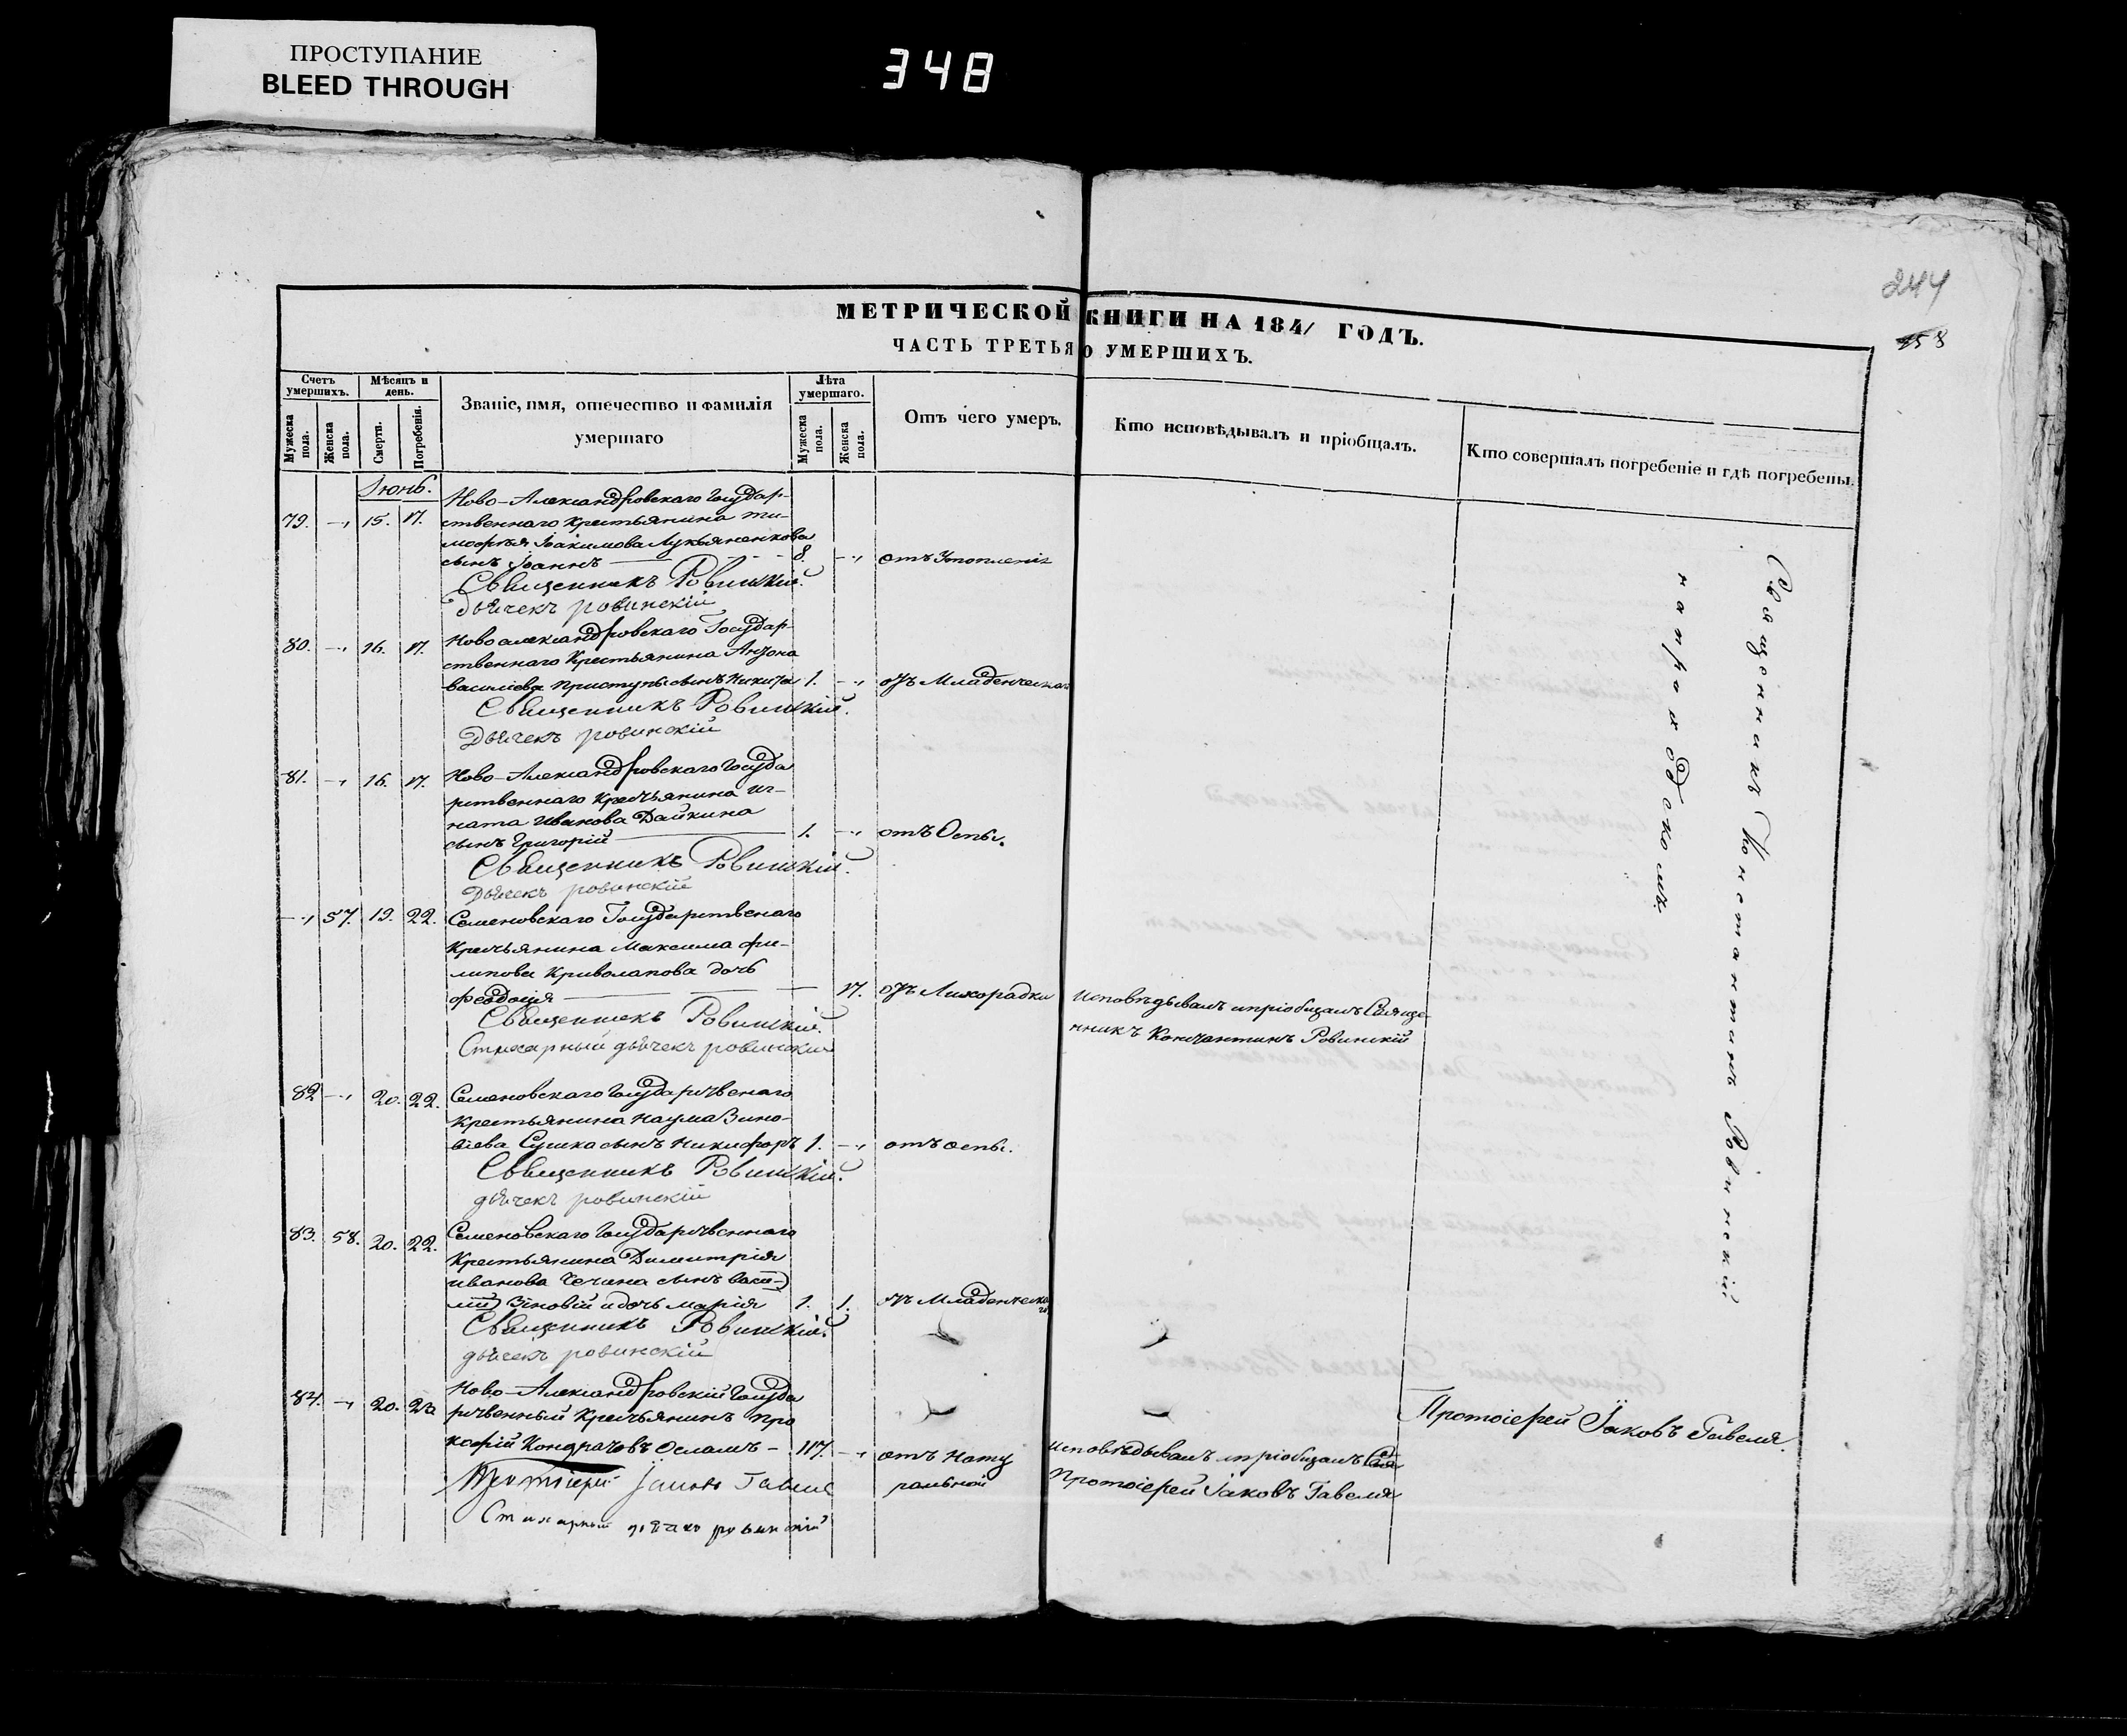 ПРОСТУПАНИЕ
BLEED THROUGH
348
244
58
МЕТРИЧЕСКОЙ КНИГИ НА 1841 ГОДЪ.
ЧАСТЬ ТРЕТЬЯ О УМЕРШИХЪ.
Счетъ умершихъ.
Мужеска пола.
Женска пола.
Мѣсяцъ и день.
Смерти.
Погребенія.
Званіе, имя, отечество и фамилія
умершаго
Лѣта умершаго.
Мужеска пола.
Женска пола.
Отъ чего умеръ.
Кто исповѣдывалъ и пріобщалъ.
Кто совершалъ погребеніе и гдѣ погребены.
Іюнь.
Ново-Александровскаго Государ-
79. 15. 17. ственнаго крестьянина Ти-
мофея Іоакимова Лукьяненкова
сынъ Іоаннъ 8. отъ Утопленія
Священникъ Ровинскій.
Дьячекъ ровинскій
80. 16. 17. Новоалександровскаго Государ-
ственнаго Крестьянина Антона
Василіева Приступы сынъ Никита 1. отъ Младенческой
Священникъ Ровинскій.
Дьячекъ ровинскій
81. 16. 17. Ново-Александровскаго Госуда
рственнаго Крестьянина Иг-
ната Иванова Дайкина
сынъ Григорій 1. отъ Оспы.
Священникъ Ровинскій.
Дьячекъ ровинскій
57. 19. 22. Семеновскаго Государственаго
Крестьянина Максима Фи-
липова Криволапова дочь
Феодосія 17. отъ Лихорадки Исповѣдывалъ и пріобщалъ Свяще-
нникъ Константинъ Ровинскій
Священникъ Ровинскій.
Стихарный дьячекъ ровинскій
82 20. 22. Семеновскаго Государственаго
Крестьянина Наума Зино-
віева Сушка сынъ Никифоръ 1. отъ оспы.
Священникъ Ровинскій.
дьячекъ ровинскій
83. 58. 20. 22. Семеновскаго Государственнаго
Крестьянина Димитрія
Иванова Чечина сынъ (васи-
лій) Зіновій и дочь Марія 1. 1. отъ Младенческой
Священникъ Ровинскій.
дьячекъ ровинскій
Ново-Александровскій Госуда
84. 20. рственный Крестьянинъ Про
кофій Кондратовъ 117. отъ Нату
ральной
Исповѣдывалъ и пріобщалъ
Протоіерей Іаковъ Гавеля
Протоіерей Іаковъ Гавеля
Стихарный дьячекъ ровинскій
Священникъ Константинъ Ровинскій
на приходскомъ
Протоіерей Іаковъ Гавеля.